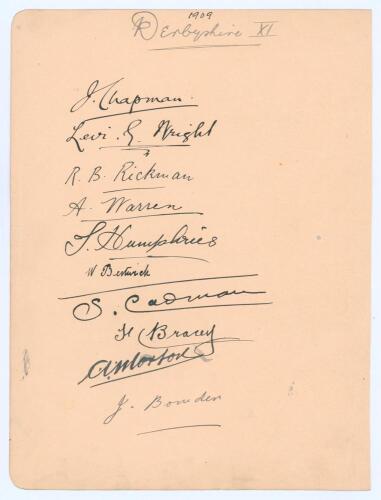 1909
Derbyshire XI
J. Chapman.
Levi. G. Wright
R. B. Rickman
A. Warren
J. Humphries
W Bestwick
S. Cadman
F Bracey
A. Morton
J. Bowden